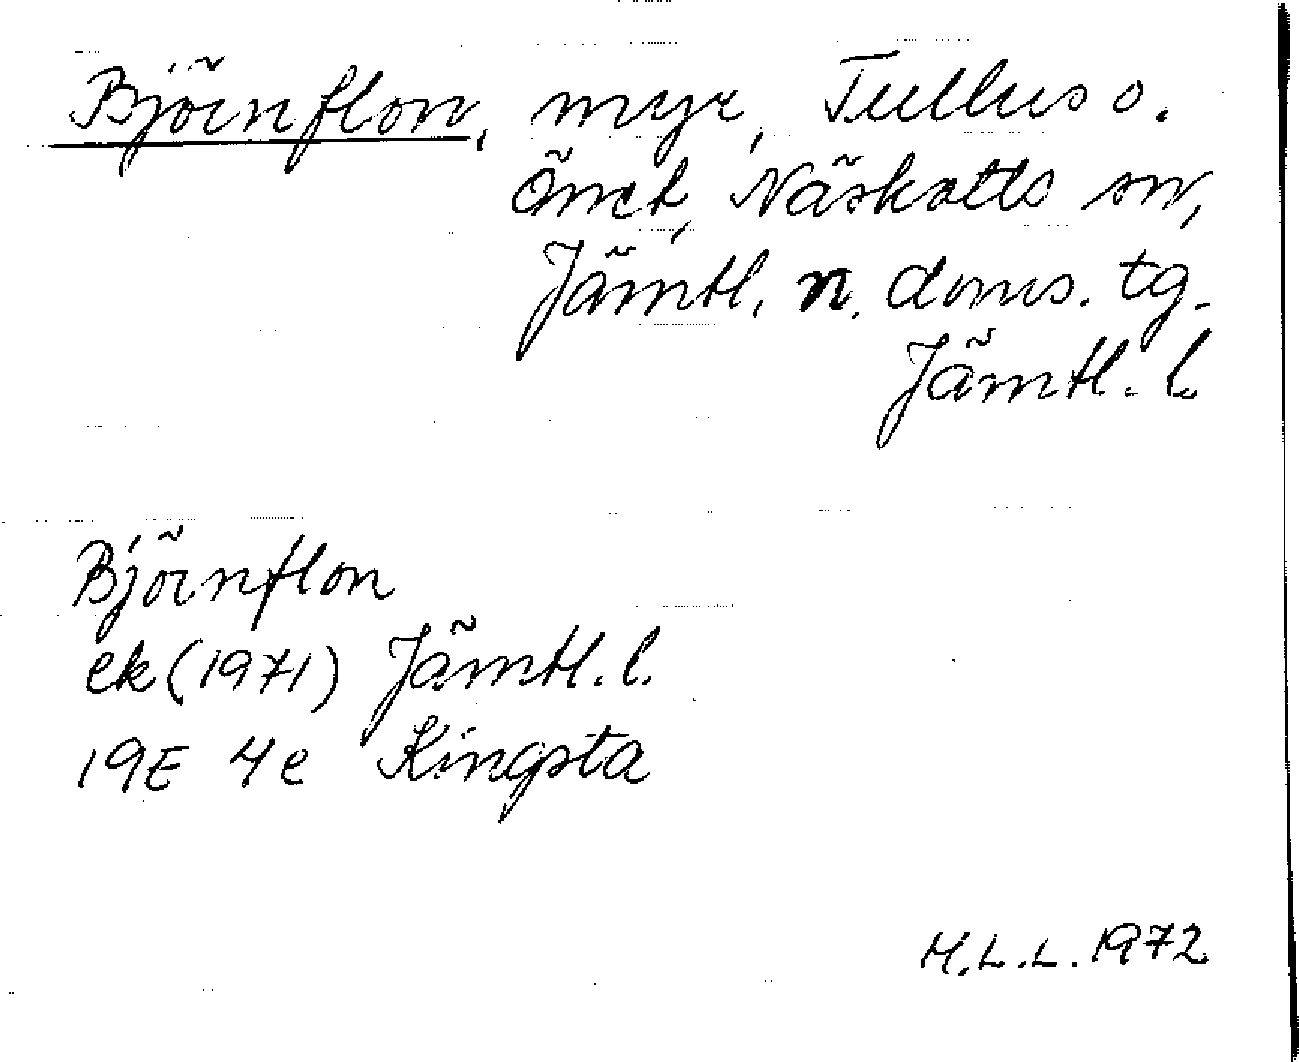 Björnflon, myr, Tullus o.
Önet, Näskotts sn,
Jämtl. n. doms. tg.
Jämtl. l.
Björnflon
ek (1971) Jämtl. l.
19E 4e Kingsta
M.L.L. 1972